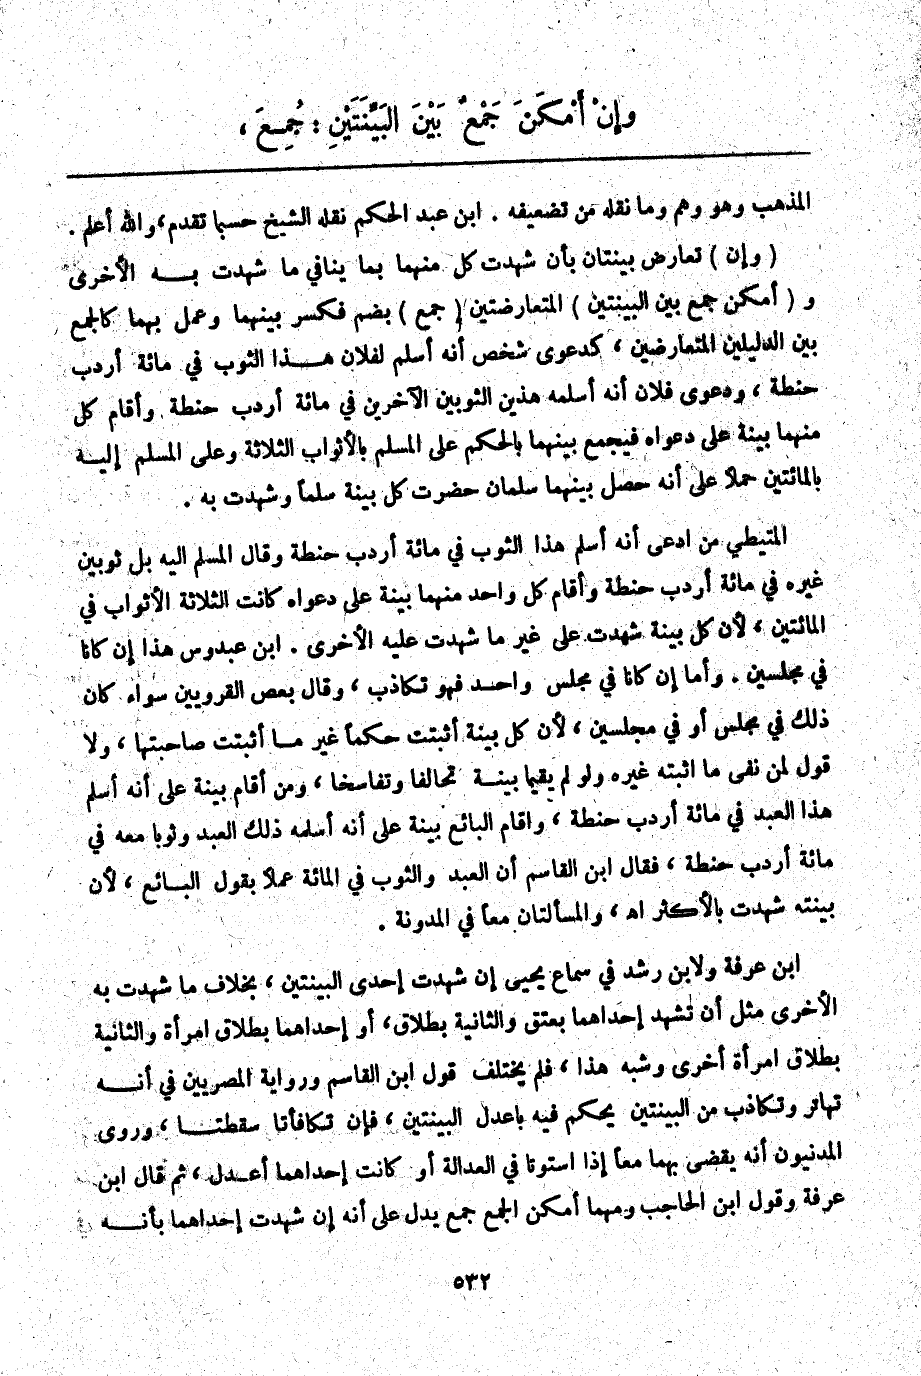 وإِنْ أَمْكَنَ جَمْعٌ بَيْنَ البَيِّنَتَيْنِ : جُمِعَ ،
المذهب وهو وهم وما نقله من تضعيفه . ابن عبد الحكم نقله الشيخ حسبما تقدم ، والله أعلم .
( وإن ) تعارض بينتان بأن شهدت كل منهما بما ينافي ما شهدت بـــه الأخرى
و ( أمكن جمع بين البينتين ) المتعارضتين ( جمع ) بضم فكسر بينهما وعمل بهما كالجمع
بين الدليلين المتعارضين ، كدعوى شخص أنه أسلم لفلان هـــذا الثوب في مائة أردب
حنطة ، ودعوى فلان أنه أسلمه هذين الثوبين الآخرين في مائة أردب حنطة وأقام كل
منهما بينة على دعواه فيجمع بينهما بالحكم على المسلم بالأثواب الثلاثة وعلى المسلم إليـه
بالمائتين حملا على أنه حصل بينهما سلمان حضرت كل بينة سلماً وشهدت به .
المتيطي من ادعى أنه أسلم هذا الثوب في مائة أردب حنطة وقال المسلم اليه بل ثوبين
غيره في مائة أردب حنطة وأقام كل واحد منهما بينة على دعواه كانت الثلاثة الأثواب في
المائتين ، لأن كل بينة شهدت على غير ما شهدت عليه الأخرى . ابن عبدوس هذا إن كانا
في مجلسين . وأما إن كانا في مجلس واحـد فهو تكاذب ، وقال بعض القرويين سواء كان
ذلك في مجلس أو في مجلسين ، لأن كل بينة أثبتت حكماً غير مــا أثبتت صاحبتها ، ولا
قول لمن نفى ما اثبته غيره ولو لم يقيما بينــة تحالفا وتفاسخا ، ومن أقام بينة على أنه أسلم
هذا العبد في مائة أردب حنطة ، واقام البائع بينة على أنه أسلمه ذلك العبد وثوبا معه في
مائة أردب حنطة ، فقال ابن القاسم أن العبد والثوب في المائة عملا بقول البــائع ، لأن
بينته شهدت بالأكثر اه ، والمسألتان معاً في المدونة .
ابن عرفة ولابن رشد في سماع يحيى إن شهدت إحدى البينتين ، بخلاف ما شهدت به
الأخرى مثل أن تشهد إحداهما بعتق والثانية بطلاق ، أو إحداهما بطلاق امرأة والثانية
بطلاق امرأة أخرى وشبه هذا ، فلم يختلف قول ابن القاسم ورواية المصريين في أنـــه
تهاتر وتكاذب من البينتين يحكم فيه باعدل البينتين ، فإن تكافأتا سقطتــــا ، وروى
المدنيون أنه يقضى بهما معاً إذا استوتا في العدالة أو كانت إحداهما أعــدل ، ثم قال ابن
عرفة وقول ابن الحاجب ومهما أمكن الجمع جمع يدل على أنه إن شهدت إحداهما بأنـــه
٥٣٢